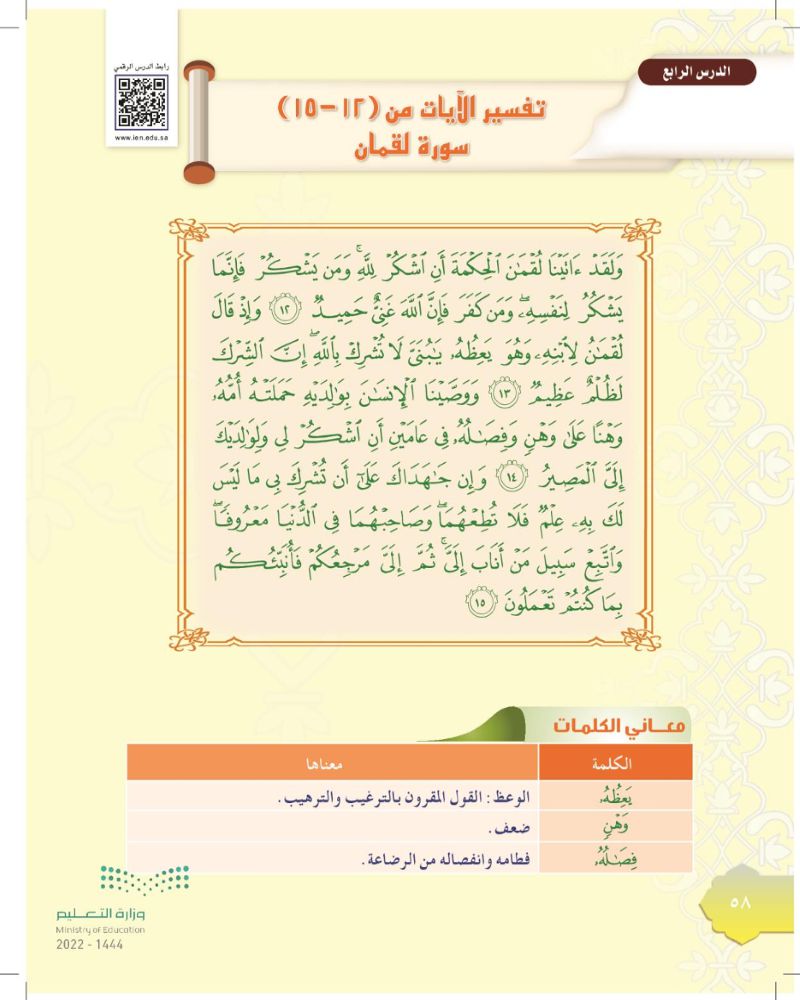 الدرس الرابع
رابط الدرس الرقمي
www.ien.edu.sa
تفسير الآيات من (١٢-١٥)
سورة لقمان
وَلَقَدۡ ءَاتَيۡنَا لُقۡمَٰنَ ٱلۡحِكۡمَةَ أَنِ ٱشۡكُرۡ لِلَّهِۚ وَمَن يَشۡكُرۡ فَإِنَّمَا
يَشۡكُرُ لِنَفۡسِهِۦۖ وَمَن كَفَرَ فَإِنَّ ٱللَّهَ غَنِيٌّ حَمِيدٞ ١٢ وَإِذۡ قَالَ
لُقۡمَٰنُ لِٱبۡنِهِۦ وَهُوَ يَعِظُهُۥ يَٰبُنَيَّ لَا تُشۡرِكۡ بِٱللَّهِۖ إِنَّ ٱلشِّرۡكَ
لَظُلۡمٌ عَظِيمٞ ١٣ وَوَصَّيۡنَا ٱلۡإِنسَٰنَ بِوَٰلِدَيۡهِ حَمَلَتۡهُ أُمُّهُۥ
وَهۡنًا عَلَىٰ وَهۡنٖ وَفِصَٰلُهُۥ فِي عَامَيۡنِ أَنِ ٱشۡكُرۡ لِي وَلِوَٰلِدَيۡكَ
إِلَيَّ ٱلۡمَصِيرُ ١٤ وَإِن جَٰهَدَاكَ عَلَىٰٓ أَن تُشۡرِكَ بِي مَا لَيۡسَ
لَكَ بِهِۦ عِلۡمٞ فَلَا تُطِعۡهُمَاۖ وَصَاحِبۡهُمَا فِي ٱلدُّنۡيَا مَعۡرُوفٗاۖ
وَٱتَّبِعۡ سَبِيلَ مَنۡ أَنَابَ إِلَيَّۚ ثُمَّ إِلَيَّ مَرۡجِعُكُمۡ فَأُنَبِّئُكُم
بِمَا كُنتُمۡ تَعۡمَلُونَ ١٥
معـــاني الكلمات
الكلمة معناها
يَعِظُهُۥ الوعظ : القول المقرون بالترغيب والترهيب .
وَهۡنٖ ضعف .
فِصَٰلُهُۥ فطامه وانفصاله من الرضاعة .
وزارة التعـــليم
Ministry of Education
2022 - 1444
٥٨